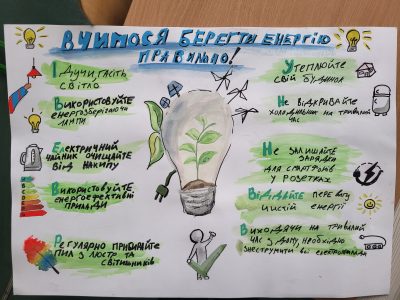 ВЧИМОСЯ БЕРЕГТИ ЕНЕРГІЮ
ПРАВИЛЬНО!
ІДУЧИ, ГАСІТЬ
СВІТЛО
ВИКОРИСТОВУЙТЕ
ЕНЕРГОЗБЕРІГАЮЧИ
ЛАМПИ
ЕЛЕКТРИЧНИЙ
ЧАЙНИК ОЧИЩАЙТЕ
ВІД НАКИПУ
ВИКОРИСТОВУЙТЕ
ЕНЕРГОЕФЕКТИВНІ
ПРИЛАДИ
РЕГУЛЯРНО ПРИБИРАЙТЕ
ПИЛ З ЛЮСТР ТА
СВІТИЛЬНИКІВ
УТЕПЛЮЙТЕ
СВІЙ БУДИНОК
НЕ ВІДКРИВАЙТЕ
ХОЛОДИЛЬНИК НА ТРИВАЛИЙ
ЧАС
НЕ ЗАЛИШАЙТЕ
ЗАРЯДКИ
ДЛЯ СМАРТФОНІВ
У РОЗЕТКАХ
ВІДДАЙТЕ ПЕРЕВАГУ
ЧИСТІЙ ЕНЕРГІЇ
ВИХОДЯЧИ НА ТРИВАЛИЙ
ЧАС З ДОМУ, НЕОБХІДНО
ЗНЕСТРУМИТИ ВСІ ЕЛЕКТРОПРИЛАДИ